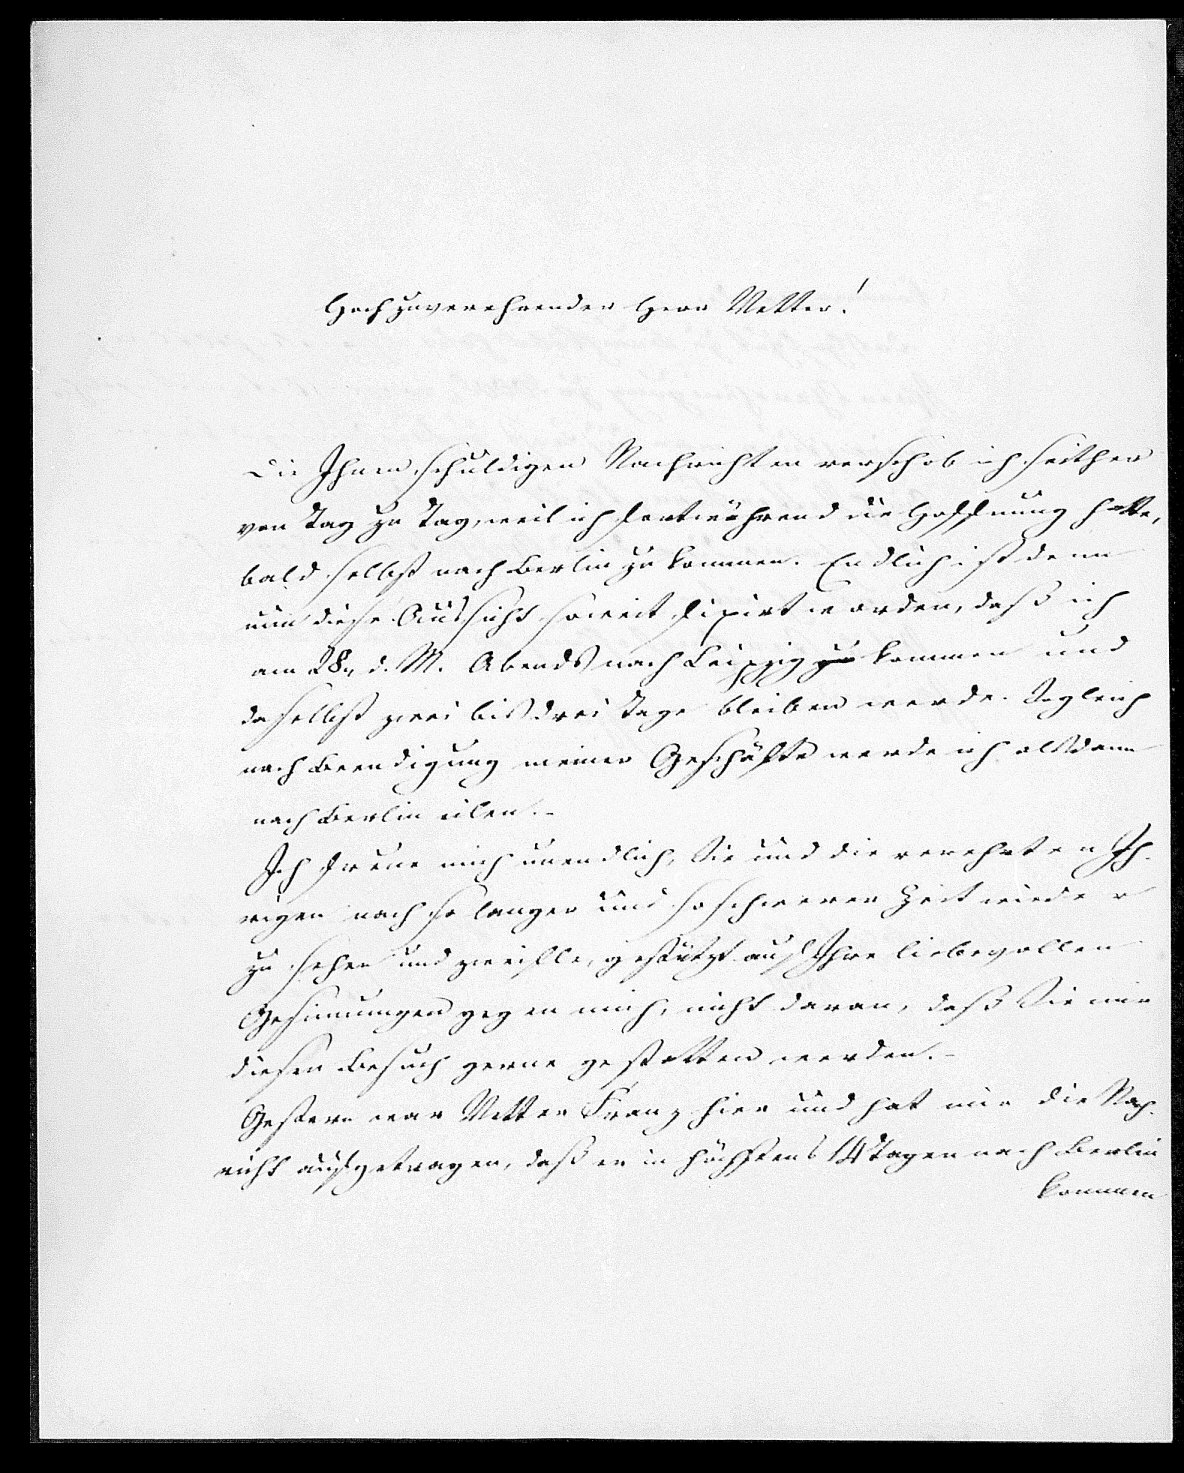 Hochzuverehrender Herr Vetter!
Die Ihnen schuldigen Nachrichten verschob ich seither
von Tag zu Tag, weil ich fortwährend die Hoffnung hatte,
bald selbst nach Berlin zu kommen. Endlich ist denn
nun diese Aussicht soweit fixirt worden, daß ich
am 28n d. M. Abends nach Leipzig zu kommen und
daselbst zwei bis drei Tage bleiben werde. Sogleich
nach Beendigung meiner Geschäfte werde ich alsdann
nach Berlin eilen.-
Ich freue mich unendlich, Sie und die verehrten Ih-
rigen nach so langer und so schwerer Zeit wieder
zu sehen und zweifle, gestützt auf Ihre liebevollen
Gesinnungen gegen mich, nicht daran, daß Sie mir
diesen Besuch gerne gestatten werden.-
Gestern war Vetter Franz hier und hat mir die Nach-
richt aufgetragen, daß er in höchstens 14 Tagen nach Berlin
kommen